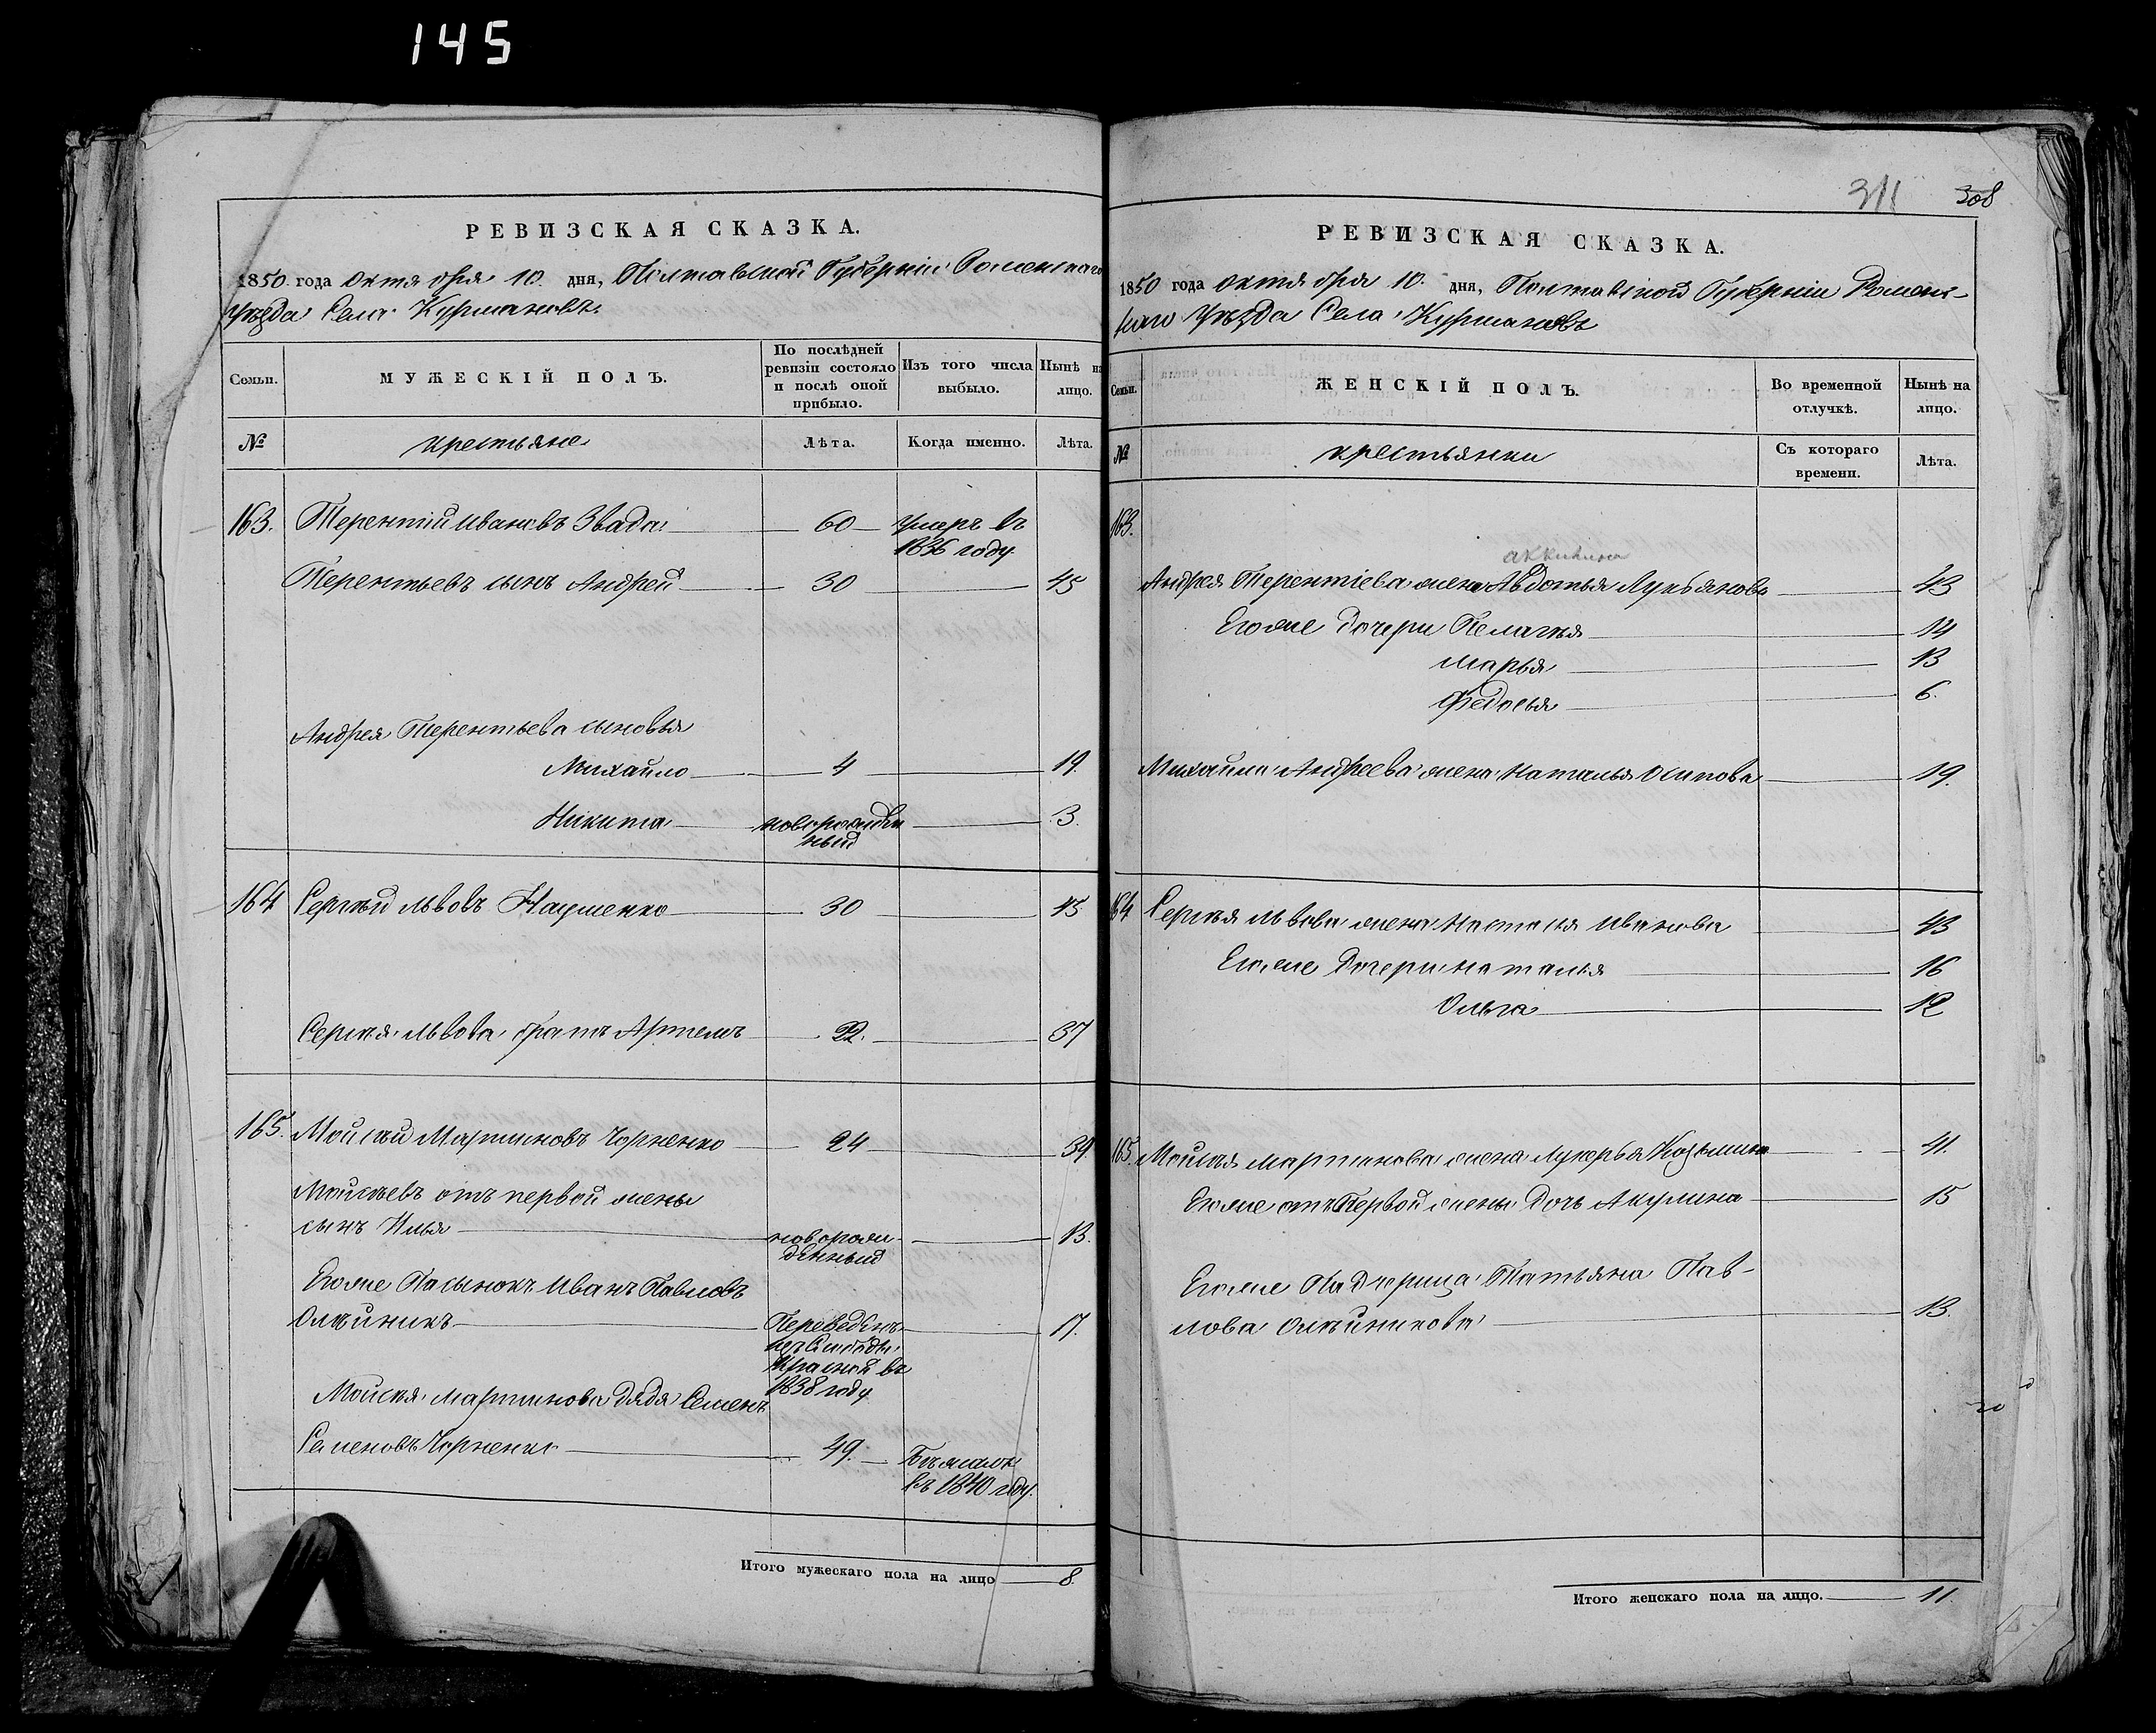 145
РЕВИЗСКАЯ СКАЗКА.
1850 года Октября 10. дня, Полтавской Губерніи Роменскаго
Уѣзда Села Курмановъ.
Семьи.
МУЖЕСКІЙ ПОЛЪ.
По послѣдней ревизіи состояло и послѣ оной прибыло.
Изъ того числа выбыло.
Нынѣ на лицо.
№
крестьяне
Лѣта.
Когда именно.
Лѣта.
163. Терентій Ивановъ Звада 60 умеръ въ
1836 году
Терентьевъ сынъ Андрей 30 45
Андрея Терентьева сыновья
Михайло 4 19.
Никита новорожден
ный 3.
164 Сергѣй Львовъ Науменко 30 45
Сергѣя Львова братъ Артемъ 22. 37
165. Мойсѣй Мартиновъ Чорненко 24 39
Мойсѣевъ отъ первой жены
сынъ Илья новорож
денный 13.
Егоже Пасынокъ Иванъ Павловъ
Олѣйникъ Переведенъ
изъ Слободы
Красной въ
1838 году 17.
Мойсѣя Мартинова дядя Семенъ
Семеновъ Чорненко 49. Бѣжалъ
въ 1840 году.
Итого мужескаго пола на лицо 8.
311 308
РЕВИЗСКАЯ СКАЗКА.
1850 года Октября 10. дня, Полтавской Губерніи Ромен-
скаго Уѣзда Села Курмановъ
Семьи.
ЖЕНСКІЙ ПОЛЪ.
Во временной отлучкѣ.
Нынѣ на лицо.
№
крестьянки
Съ котораго времени.
Лѣта.
163.
Андрея Терентіева жена Авдотья Лукьянова 43
Егоже дочери Пелагѣя 14
Марья 13
Федосья 6.
Михайла Андреева жена Наталья Осипова 19.
164 Сергѣя Львова жена Настасья Иванова 43
Егоже дочери Наталья 16
Ольга 12
165. Мойсѣя Мартинова жена Лукерья Козьмина 41.
Егоже отъ Первой жены дочь Акулина 15
Егоже Падчерица Татьяна Пав-
лова Олѣйникова 13.
Итого женскаго пола на лицо. 11.